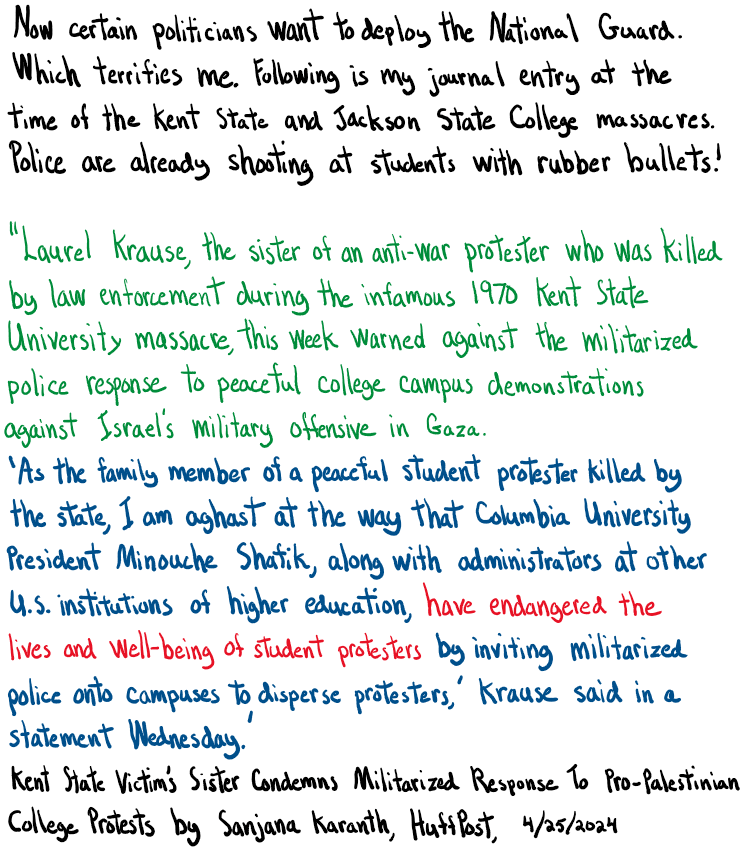 Now certain politicians want to deploy the National Guard.
Which terrifies me. Following is my journal entry at the
time of the Kent State and Jackson State College massacres.
Police are already shooting at students with rubber bullets!
"Laurel Krause, the sister of an anti-war protester who was killed
by law enforcement during the infamous 1970 Kent State
University massacre, this week warned against the militarized
police response to peaceful college campus demonstrations
against Israel's military offensive in Gaza.
'As the family member of a peaceful student protester killed by
the state, I am aghast at the way that Columbia University
President Minouche Shafik, along with administrators at other
U.S. institutions of higher education, have endangered the
lives and well-being of student protesters by inviting militarized
police onto campuses to disperse protesters,' Krause said in a
statement Wednesday.'
Kent State Victim's Sister Condemns Militarized Response To Pro-Palestinian
College Protests by Sanjana Karanth, HuffPost, 4/25/2024